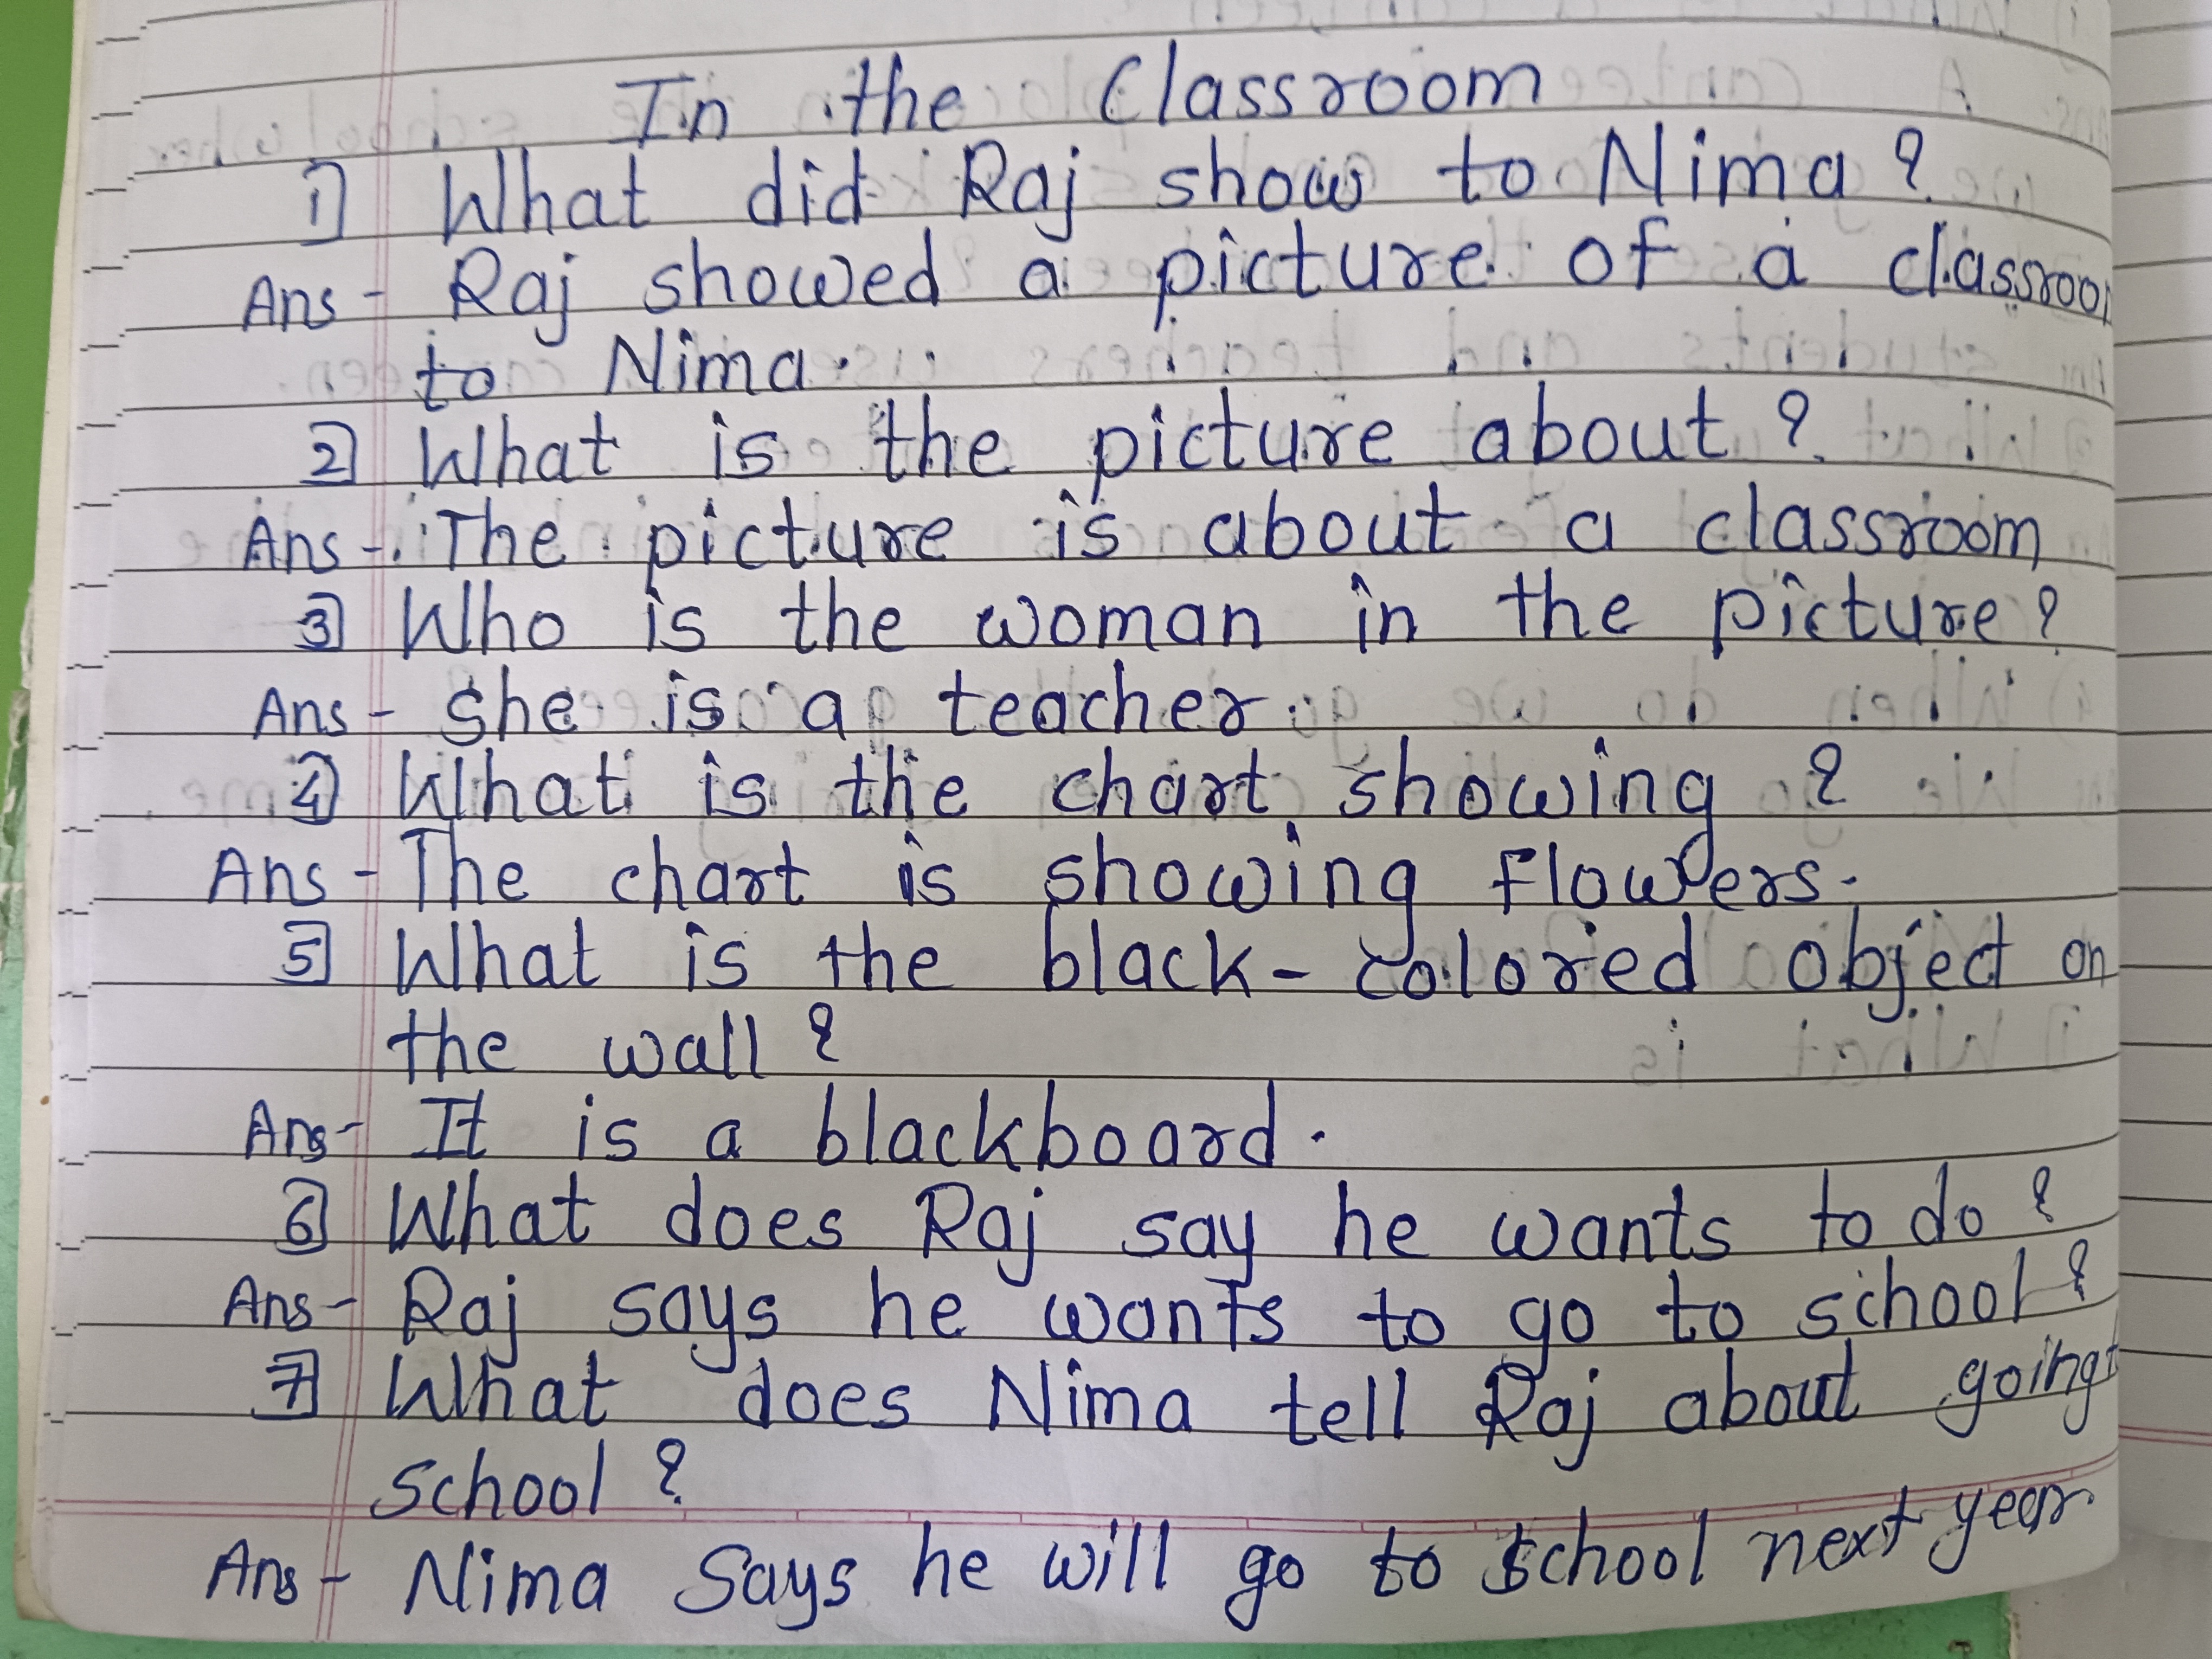 In the Classroom
1) What did Raj show to Nima?
Ans - Raj showed a picture of a classroo
to Nima.
2) What is the picture about?
Ans - The picture is about a classroom
3) Who is the woman in the picture?
Ans - She is a teacher.
4) What is the chart showing?
Ans - The chart is showing flowers.
5) What is the black-colored object on
the wall?
Ans - It is a blackboard.
6) What does Raj say he wants to do?
Ans - Raj says he wants to go to school?
7) What does Nima tell Raj about going
school?
Ans - Nima says he will go to school next year.